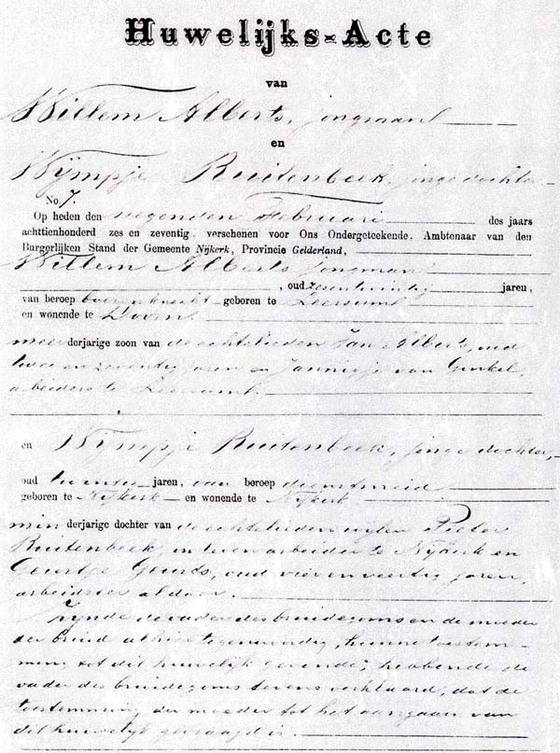 Huwelijks-Acte
van
Willem Alberts, jongman
en
Wijmpje Ruitenbeek, jonge dochter
No. 7.
Op heden den negenden Februari des jaars
achttienhonderd zes en zeventig, verschenen voor Ons Ondergeteekende, Ambtenaar van den
Burgerlijken Stand der Gemeente Nijkerk, Provincie Gelderland,
Willem Alberts jongman
, oud zesentwintig jaren,
van beroep boerenknecht geboren te Leersum
en wonende te Doorn
meerderjarige zoon van de echtelieden Jan Alberts, oud
twee en zeventig jaren en Jannigje van Ginkel,
arbeiders te Leersum.
en Wijmpje Ruitenbeek, jonge dochter,
oud twintig jaren, van beroep dienstmeid
geboren te Nijkerk en wonende te Nijkerk
minderjarige dochter van de echtelieden wijlen Pieter
Ruitenbeek, in leven arbeider te Nijkerk en
Geertje Geurts, oud vier en veertig jaren,
arbeidster aldaar.
Zijnde de vader des bruidegoms en de moeder
der bruid alhier tegenwoordig, hunne toestem-
ming tot dit huwelijk gevende, hebbende de
vader des bruidegoms tevens verklaard, dat de
toestemming der moeder tot het aangaan van
dit huwelijk gevraagd is.